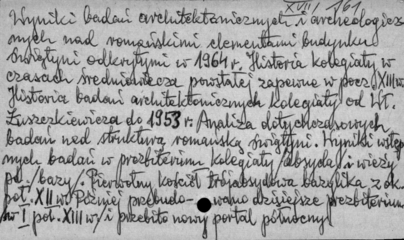 XVII/161
Wyniki badań architektonicznych i archeologicz
nych nad romańskimi elementami budynku
świątyni odkrytymi w 1961 r. Historia kolegiaty w
czasach średniowiecza powstałej zapewne w pocz. XIII w.
Historia badań architektonicznych kolegiaty od Wł.
Łuszczkiewicza do 1953 r. Analiza dotychczasowych
badań nad strukturą romańską świątyni. Wyniki wstęp
nych badań w prezbiterium kolegiaty /absyda/ i wieży
pd. /bazy/. Pierwotny kościół trójabsydowa bazylika z ok.
poł. XII w. Później przebudowano dzisiejsze prezbiterium
/w I poł. XIII w/ i przebito nowy portal północny